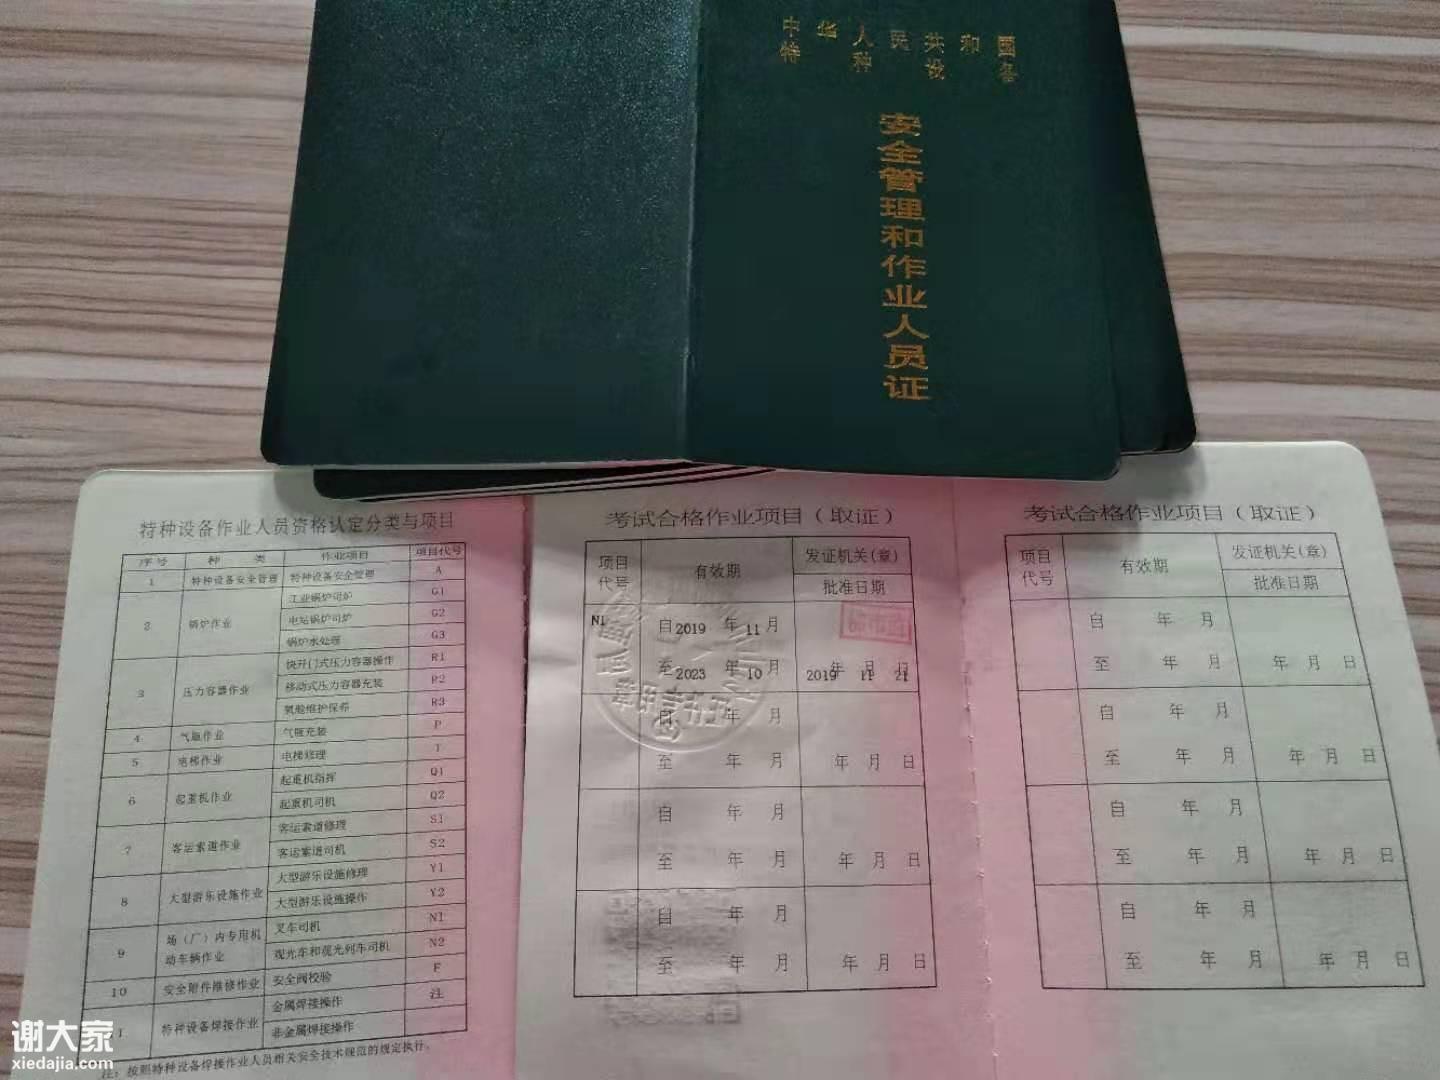 中华人民共和国
特种设备
安全管理和作业人员证
特种设备作业人员资格认定分类与项目
序号 种类 作业项目 项目代号
1 特种设备安全管理 特种设备安全管理 A
2 锅炉作业 工业锅炉司炉 G1
电站锅炉司炉 G2
锅炉水处理 G3
3 压力容器作业 快开门式压力容器操作 R1
移动式压力容器充装 R2
氧舱维护保养 R3
4 气瓶作业 气瓶充装 P
5 电梯作业 电梯修理 T
6 起重机作业 起重机指挥 Q1
起重机司机 Q2
7 客运索道作业 客运索道修理 S1
客运索道司机 S2
8 大型游乐设施作业 大型游乐设施修理 Y1
大型游乐设施操作 Y2
9 场（厂）内专用机动车辆作业 叉车司机 N1
观光车和观光列车司机 N2
10 安全附件维修作业 安全阀校验 F
特种设备焊接作业 金属焊接操作 注
非金属焊接操作
注：按照特种设备焊接作业人员相关安全技术规范的规定执行。
考试合格作业项目（取证）
项目代号 有效期 发证机关（章）
批准日期
N1 自2019年11月
至2023年10月 2019年11月21日
自 年 月
至 年 月 年 月 日
自 年 月
至 年 月 年 月 日
自 年 月
至 年 月 年 月 日
考试合格作业项目（取证）
项目代号 有效期 发证机关（章）
批准日期
自 年 月
至 年 月 年 月 日
自 年 月
至 年 月 年 月 日
自 年 月
至 年 月 年 月 日
自 年 月
至 年 月 年 月 日
谢大家
xiedajia.com